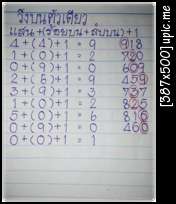 วิ่งบนตัวเดียว
แสน+(ร้อยบน+สิบบน)+1
4+(4)+1 = 9 918
1+(0)+1 = 2 720
0+(9)+1 = 0 609
2+(6)+1 = 9 459
3+(9)+1 = 3 737
1+(0)+1 = 2 825
5+(0)+1 = 6 816
0+(9)+1 = 0 460
0+(0)+1 = 1
[387x500]upic.me